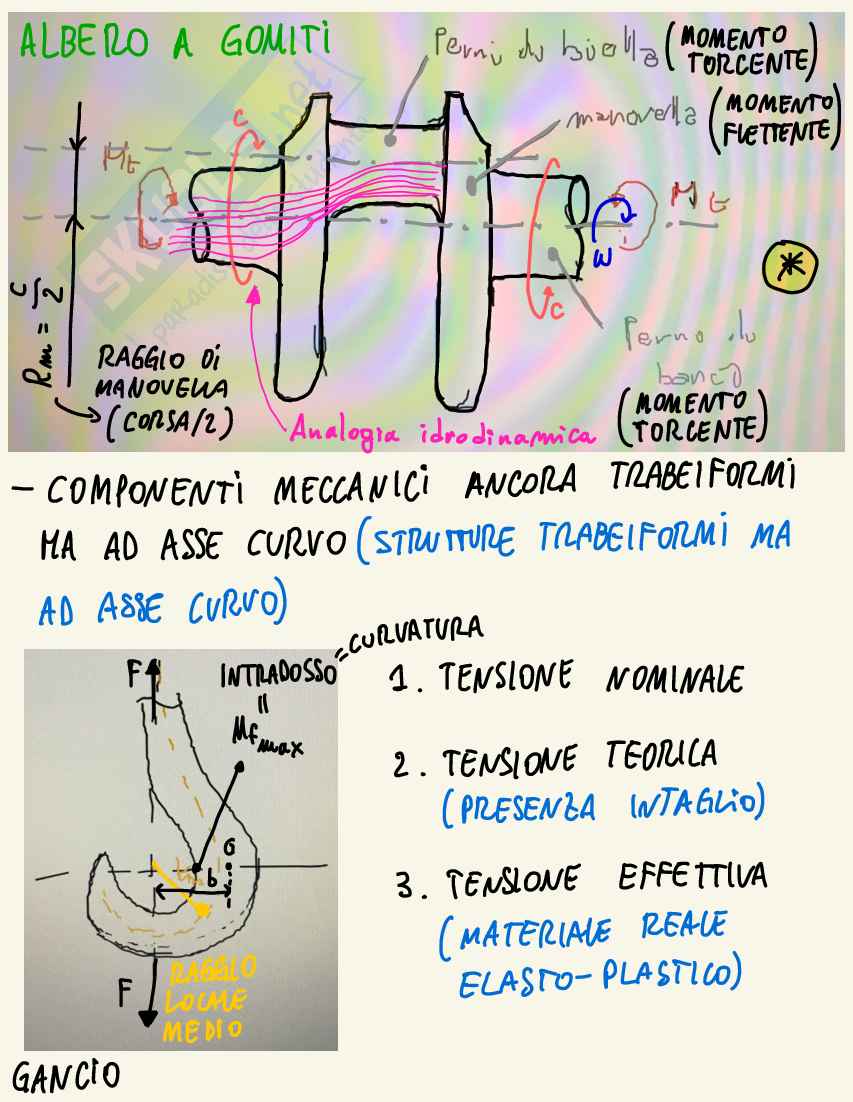 ALBERO A GOMITI
Perni di biella (MOMENTO
TORCENTE)
manovella (MOMENTO
FLETTENTE)
C
Mt
C
Mt
ω
*
Rm = C/2
RAGGIO DI
MANOVELLA
(CORSA/2)
Perno di
banco
(MOMENTO
TORCENTE)
Analogia idrodinamica
SKUOLA.net
- COMPONENTI MECCANICI ANCORA TRABEIFORMI
MA AD ASSE CURVO (STRUTTURE TRABEIFORMI MA
AD ASSE CURVO)
F
INTRADOSSO = CURVATURA
=
Mfmax
G
b
RAGGIO
LOCALE
MEDIO
F
GANCIO
1. TENSIONE NOMINALE
2. TENSIONE TEORICA
(PRESENZA INTAGLIO)
3. TENSIONE EFFETTIVA
(MATERIALE REALE
ELASTO-PLASTICO)